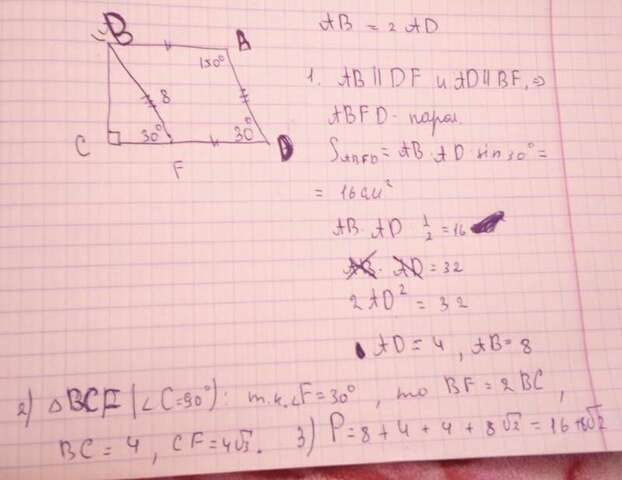 AB = 2 AD
B
A
150°
8
30°
30°
C
F
D
1. AB || DF и AD || BF, ⇒
ABFD - парал.
S_ABFD = AB · AD · sin 30° =
= 16 см²
AB · AD 1/2 = 16
AB · AD = 32
2 AD² = 32
AD = 4, AB = 8
2) △BCF (∠C=90°): т.к. ∠F=30°, то BF = 2 BC,
BC = 4, CF = 4√3.
3) P = 8 + 4 + 4 + 8√2 = 16 + 8√2